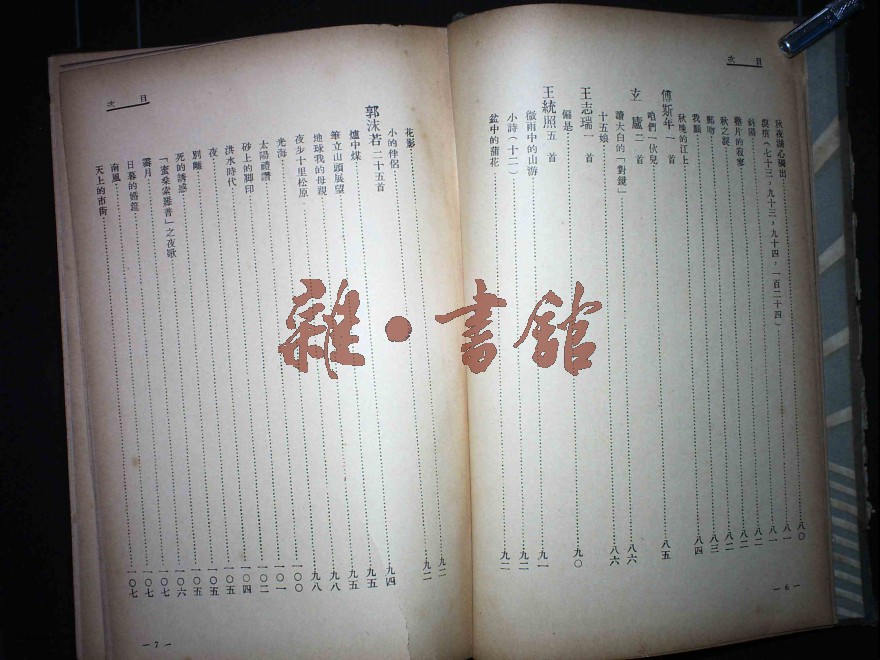 目次
秋夜湖心獨出……八〇
戾俏(七十三,九十三,九十四,一百二十四)……八一
斜陽……八一
雞片的寂寥……八二
秋之淚……八二
郵吻……八三
我願……八四
秋晚的江上
傅斯年一首
咱們一伙兒……八五
玄廬二首
讀大白的「對鏡」……八六
十五娘……八六
王志瑞一首
偏是……九〇
王統照五首
微雨中的山游……九一
小詩(十二)……九二
盆中的蒲花……九二
—6—
目次
花影……九二
小的伴侶……九四
郭沫若二十五首
爐中煤……九五
筆立山頭展望……九八
地球我的母親……九八
夜步十里松原……一〇〇
光海……一〇一
太陽禮讚……一〇二
砂上的脚印……一〇四
洪水時代……一〇五
夜……一〇五
別離……一〇五
死的誘惑……一〇六
「蜜桑索羅普」之夜歌……一〇七
霽月……一〇七
日暮的婚筵
南風
天上的市街……一〇七
—7—
雜·書館